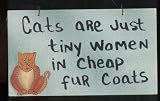 Cats are Just
tiny women
in cheap
fur coats